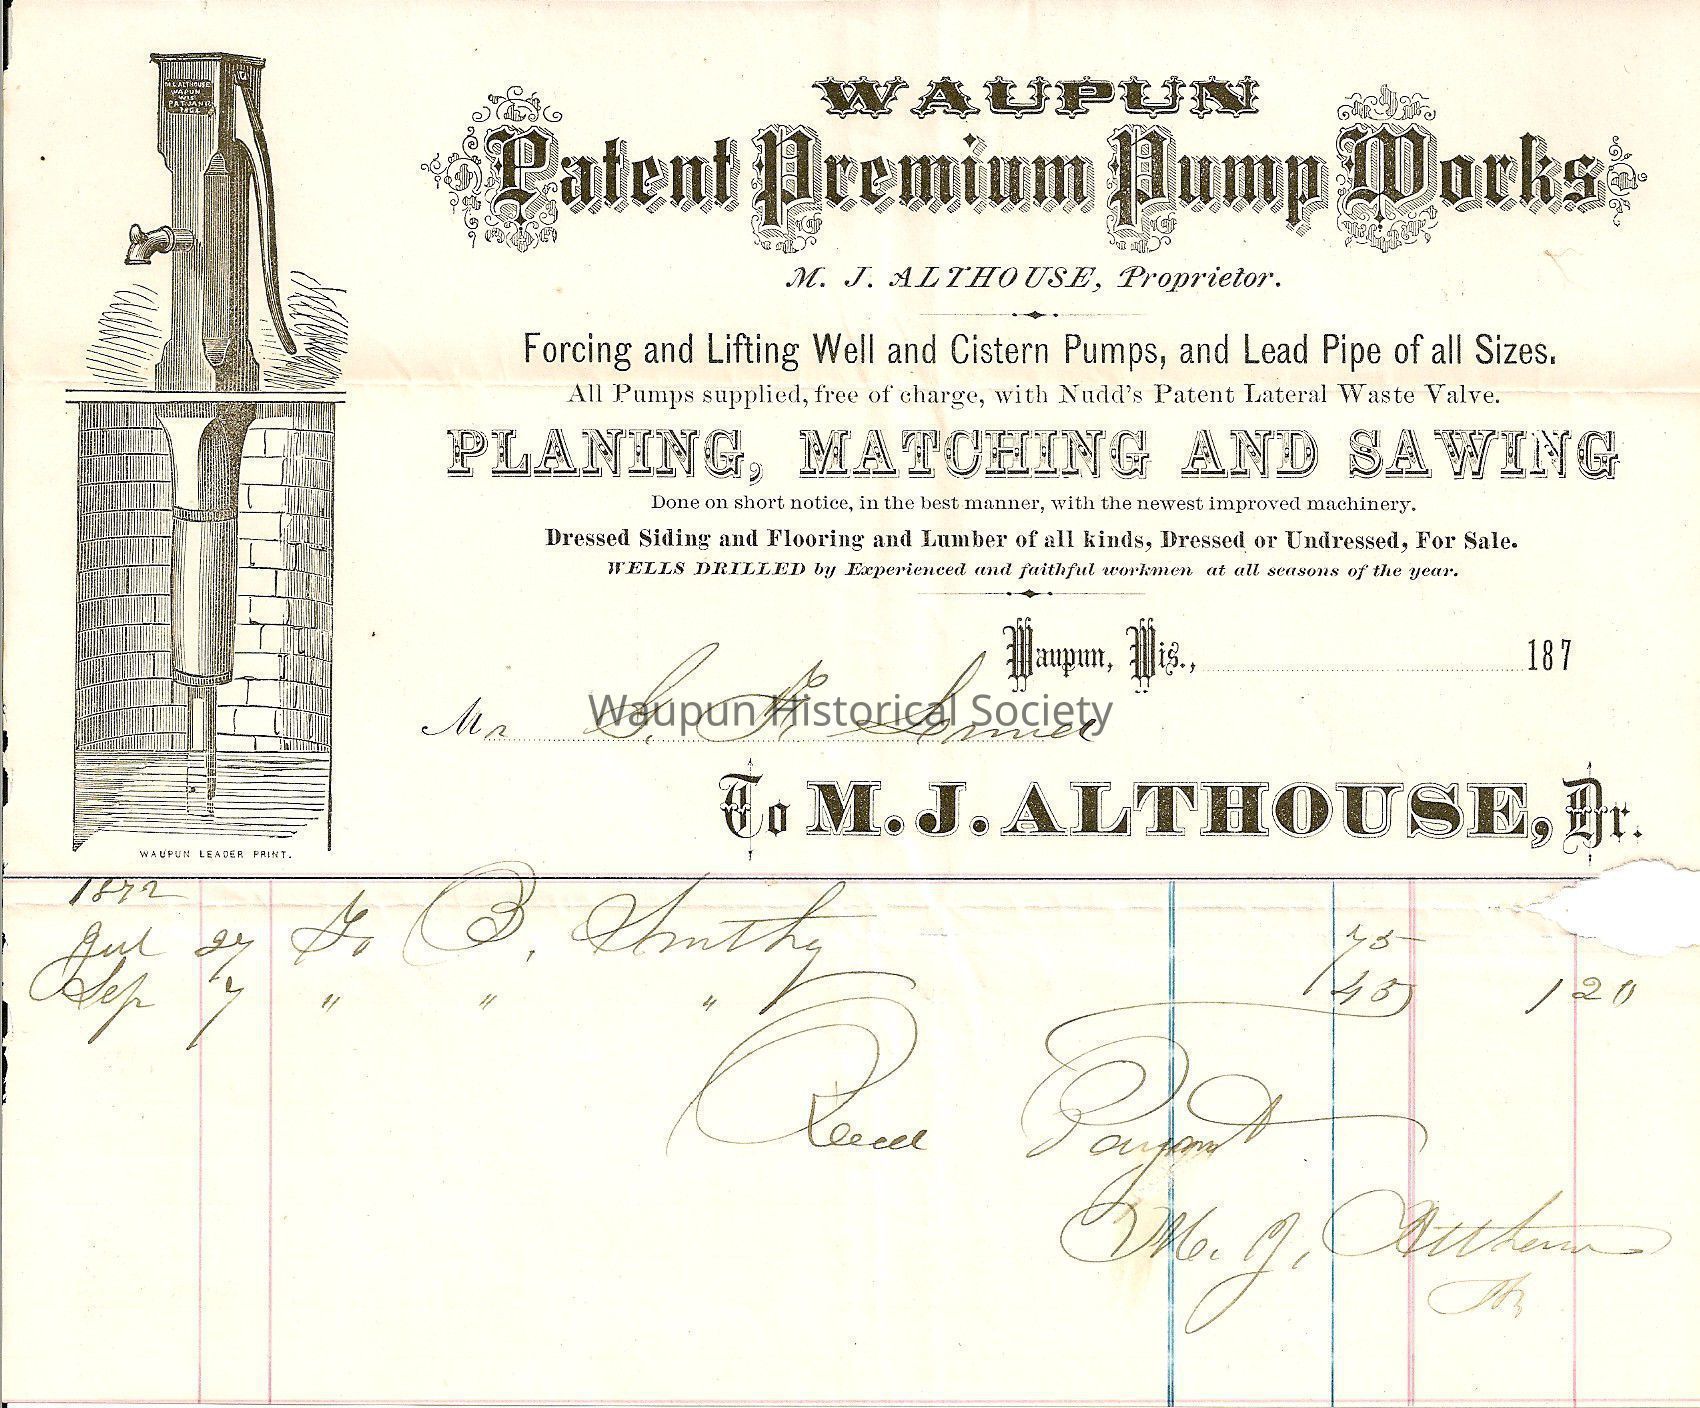 M.J. ALTHOUSE
WAUPUN
WIS
PAT. JAN'R
WAUPUN
Patent Premium Pump Works
M. J. ALTHOUSE, Proprietor.
Forcing and Lifting Well and Cistern Pumps, and Lead Pipe of all Sizes.
All Pumps supplied, free of charge, with Nudd's Patent Lateral Waste Valve.
PLANING, MATCHING AND SAWING
Done on short notice, in the best manner, with the newest improved machinery.
Dressed Siding and Flooring and Lumber of all kinds, Dressed or Undressed, For Sale.
WELLS DRILLED by Experienced and faithful workmen at all seasons of the year.
Waupun, Wis., 187
Mr G. F.
Waupun Historical Society
To M. J. ALTHOUSE, Dr.
WAUPUN LEADER PRINT.
1872
Jul 27 To B. Smithy 75
Sep 7 " " " 45 1 20
Recd Paymt
M. J. Althouse